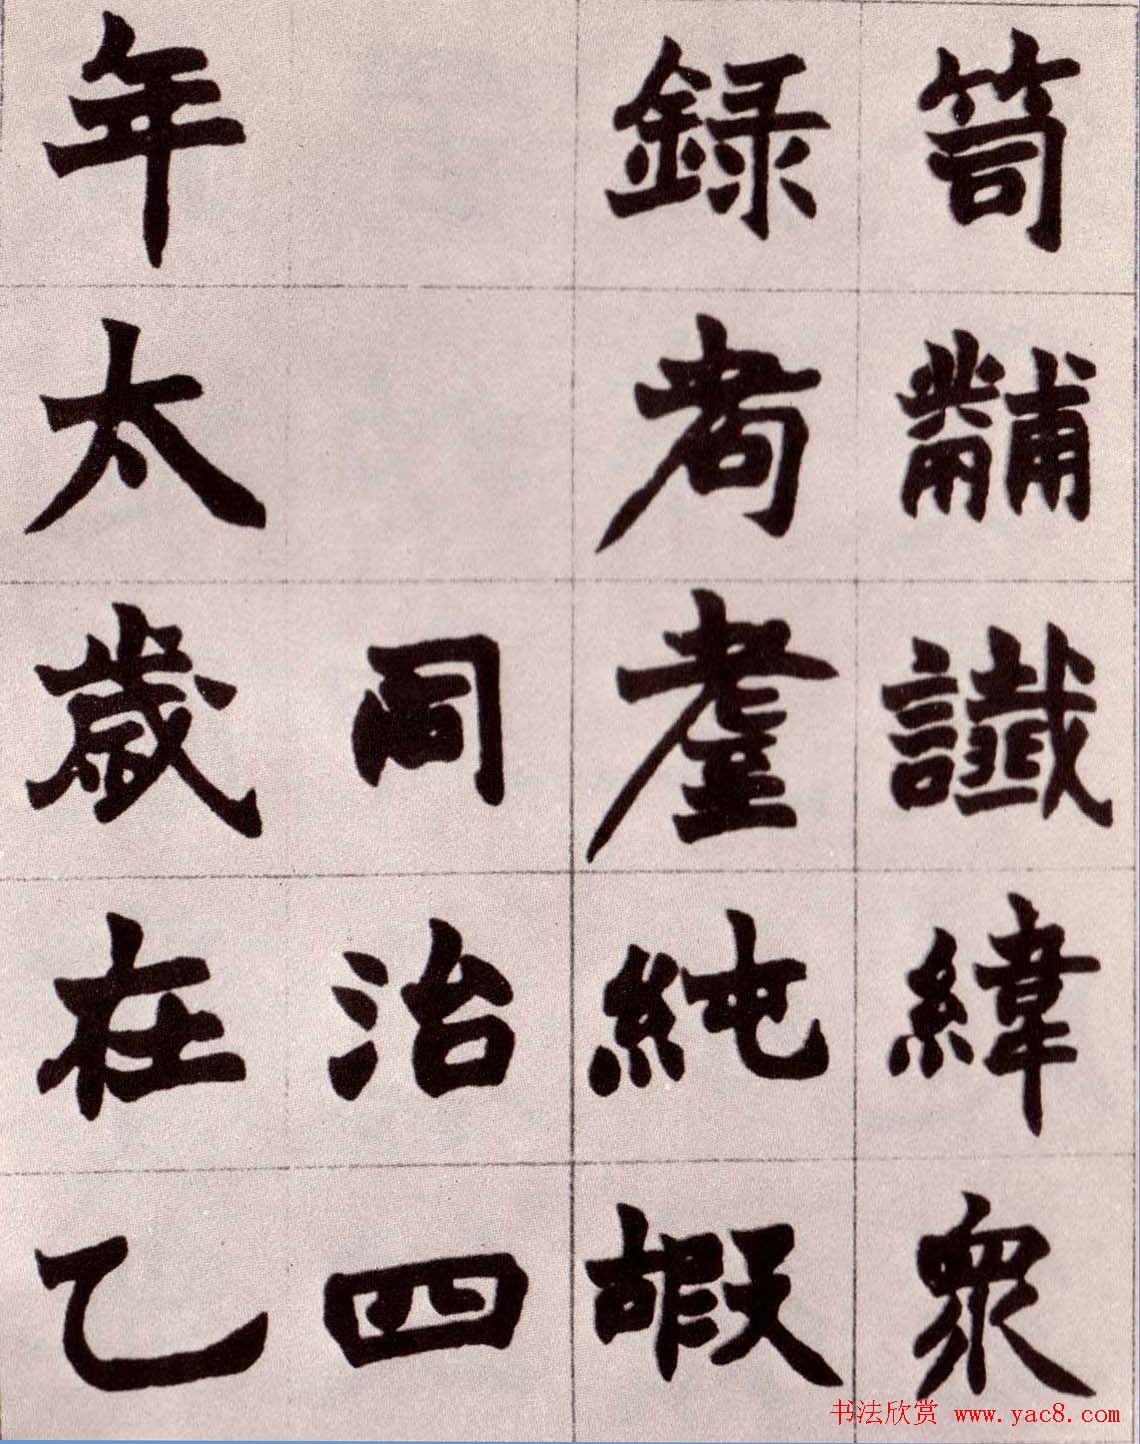 笥黼讖緯衆
録耇耋純嘏
同治四
年太歲在乙
书法欣赏 www.yac8.com